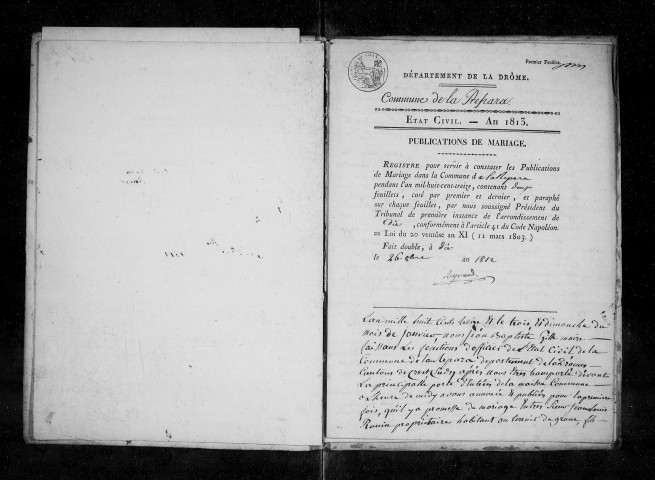 Premier Feuillet
DÉPARTEMENT DE LA DRÔME.
Commune de la Repara
ETAT CIVIL. — AN 1813.
PUBLICATIONS DE MARIAGE.
REGISTRE pour servir à constater les Publications
de Mariage dans la Commune de la Repara
pendant l'an mil-huit-cent-treize, contenant deux
feuillets, coté par premier et dernier, et paraphé
sur chaque feuillet, par nous soussigné Président du
Tribunal de première instance de l'arrondissement de
Die, conformément à l'article 41 du Code Napoléon.
au Loi du 20 ventôse an XI (11 mars 1803.)
Fait double, à Die
le 26 8bre an 1812
L'an mille huit cents treize et le trois, et dimanche du
mois de janvier, nous jean Baptiste maire
faissans les fonctions d'officier de l'état Civil de la
Commune de la Repara departement de la Drome
Cantons de Crest sud, après nous etres transporté devant
La principalle porte d'entrée de la maison Commune
a L'heure de midy avons annoncé et publiée pour la premiere
fois, qu'il y a promesse de mariage Entre Sieur jean Louis
propriétaire habitant au terroir de grane, fils